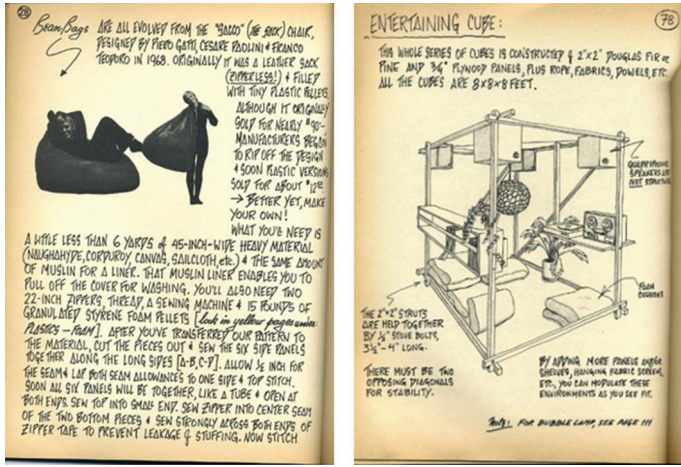 28
Bean Bags
ARE ALL EVOLVED FROM THE "SACCO" (THE SACK) CHAIR,
DESIGNED BY PIERO GATTI, CESARE PAOLINI & FRANCO
TEODORO IN 1968. ORIGINALLY IT WAS A LEATHER SACK
(ZIPPERLESS!) & FILLED
WITH TINY PLASTIC PELLETS.
ALTHOUGH IT ORIGINALLY
SOLD FOR NEARLY
MANUFACTURERS BEGAN
TO RIP OFF THE DESIGN
& SOON PLASTIC VERSIONS
SOLD FOR ABOUT
→ BETTER YET, MAKE
YOUR OWN!
WHAT YOU'LL NEED IS
A LITTLE LESS THAN 6 YARDS of 45-INCH-WIDE HEAVY MATERIAL
(NAUGHAHYDE, CORDUROY, CANVAS, SAILCLOTH, etc.) & THE SAME AMOUNT
OF MUSLIN FOR A LINER. THAT MUSLIN LINER ENABLES YOU TO
PULL OFF THE COVER FOR WASHING. YOU'LL ALSO NEED TWO
22-INCH ZIPPERS, THREAD, A SEWING MACHINE & 15 POUNDS of
GRANULATED STYRENE FOAM PELLETS [look in yellow pages under
PLASTICS – FOAM]. AFTER YOU'VE TRANSFERRED OUR PATTERN TO
THE MATERIAL, CUT THE PIECES OUT & SEW THE SIX SIDE PANELS
TOGETHER ALONG THE LONG SIDES [A-B, C-D]. ALLOW ½ INCH FOR
THE SEAM & LAP BOTH SEAM ALLOWANCES TO ONE SIDE & TOP STITCH.
SOON ALL SIX PANELS WILL BE TOGETHER, LIKE A TUBE & OPEN AT
BOTH ENDS. SEW TOP INTO SMALL END. SEW ZIPPER INTO CENTER SEAM
OF THE TWO BOTTOM PIECES & SEW STRONGLY ACROSS BOTH ENDS OF
ZIPPER TAPE TO PREVENT LEAKAGE of STUFFING. NOW STITCH
ENTERTAINING CUBE:
78
THIS WHOLE SERIES OF CUBES IS CONSTRUCTED of 2"x2" DOUGLAS FIR or
PINE AND ¾" PLYWOOD PANELS, PLUS ROPE, FABRICS, DOWELS, ETC.
ALL THE CUBES ARE 8x8x8 FEET.
QUADRIPHONIC
SPEAKERS ARE
NOT STRUCTURAL
FOAM
CUSHIONS
THE 2"x2" STRUTS
ARE HELD TOGETHER
BY ¼" STOVE BOLTS,
3½"–4" LONG.
THERE MUST BE TWO
OPPOSING DIAGONALS
FOR STABILITY.
BY ADDING MORE PANELS and/or
SHELVES, HANGING FABRIC SCREENS,
ETC., YOU CAN MODULATE THESE
ENVIRONMENTS AS YOU SEE FIT.
FOR BUBBLE LAMP, SEE PAGE 111